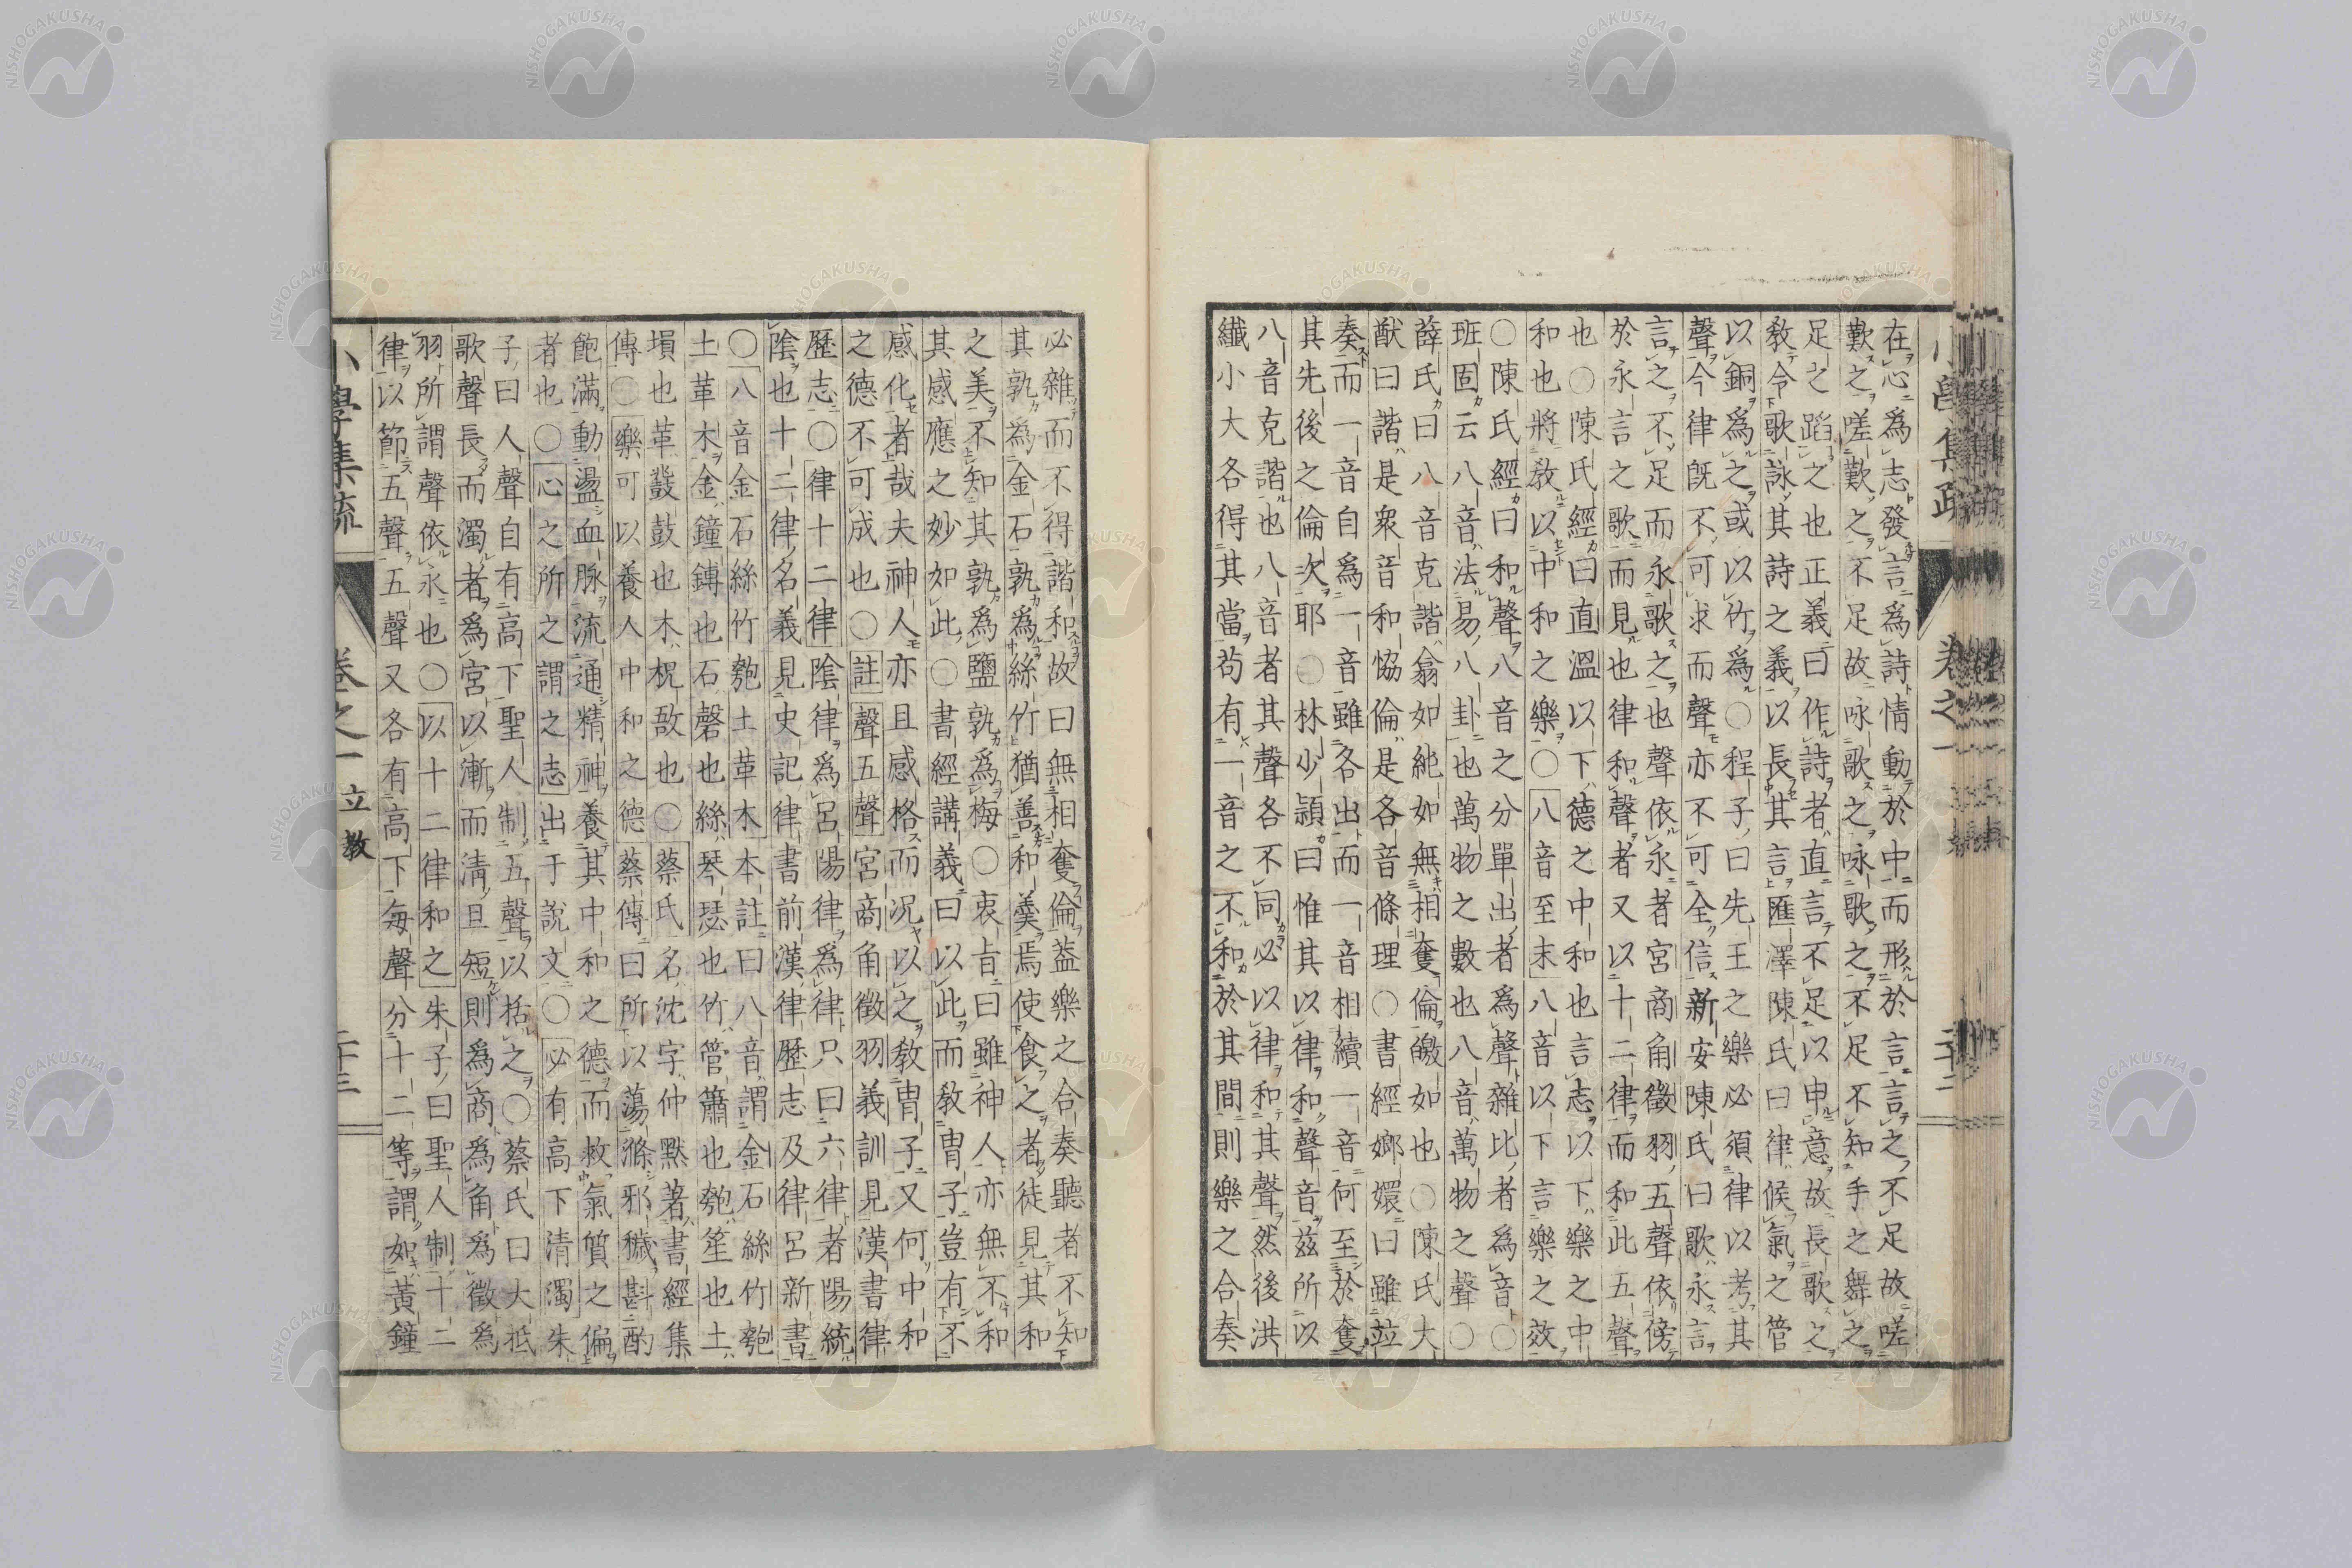 在心爲志發言爲詩情動於中而形於言言之不足故嗟
歎之嗟歎之不足故咏歌之咏歌之不足不知手之舞之
足之蹈之也正義曰作詩者直言不足以申意故長歌之
教令歌詠其詩之義以長其言匯澤陳氏曰律候氣之管
以銅爲之或以竹爲〇程子曰先王之樂必須律以考其
聲今律旣不可求而聲亦不可全信新安陳氏曰歌永言
言之不足而永歌之也聲依永者宮商角徵羽五聲依傍
於永言之歌而見也律和聲者又以十二律而和此五聲
也〇陳氏經曰直溫以下德之中和也言志以下樂之中
和也將敎以中和之樂〇八音至末八音以下言樂之效
〇陳氏經曰和聲八音之分單出者爲聲雜比者爲音〇
班固云八音法易八卦也萬物之數也八音萬物之聲〇
薛氏曰八音克諧翕如純如無相奪倫皦如也〇陳氏大
猷曰諧是衆音和協倫是各音條理〇書經嫏嬛曰雖竝
奏而一音自爲一音雖各出而一音相續一音何至於奪
其先後之倫次耶〇林少穎曰惟其以律和聲音兹所以
八音克諧也八音者其聲各不同必以律和其聲然後洪
纎小大各得其當苟有一音之不和於其間則樂之合奏
必雜而不得諧和故曰無相奪倫葢樂之合奏聽者不知
其孰爲金石孰爲絲竹猶善和羹焉使食之者徒見其和
之美不知其孰爲鹽孰爲梅〇衷旨曰雖神人亦無不和
其感應之妙如此〇書經講義曰以此而敎冑子豈有不
感化者哉夫神人亦且感格而况以之敎冑子又何中和
之德不可成也〇註聲五聲宮商角徵羽義訓見漢書律
歷志〇律十二律陰律爲呂陽律爲律只曰六律者陽統
陰也十二律名義見史記律書前漢律歷志及律呂新書
〇八音金石絲竹匏土革木本註曰八音謂金石絲竹匏
土革木金鐘鎛也石磬也絲琴瑟也竹管簫也匏笙也土
塤也革鼗鼓也木柷敔也〇蔡氏名沈字仲默著書經集
傳〇樂可以養人中和之德蔡傳曰所以蕩滌邪穢斟酌
飽滿動盪血脉流通精神養其中和之德而救氣質之偏
者也〇心之所之謂之志出于說文〇必有高下清濁朱
子曰人聲自有高下聖人制五聲以括之〇蔡氏曰大抵
歌聲長而濁者爲宮以漸而清且短則爲商爲角爲徵爲
羽所謂聲依永也〇以十二律和之朱子曰聖人制十二
律以節五聲五聲又各有高下每聲分十二等謂如黃鐘
小學集疏 卷之一 立教 二十三
NISHOGAKUSHA